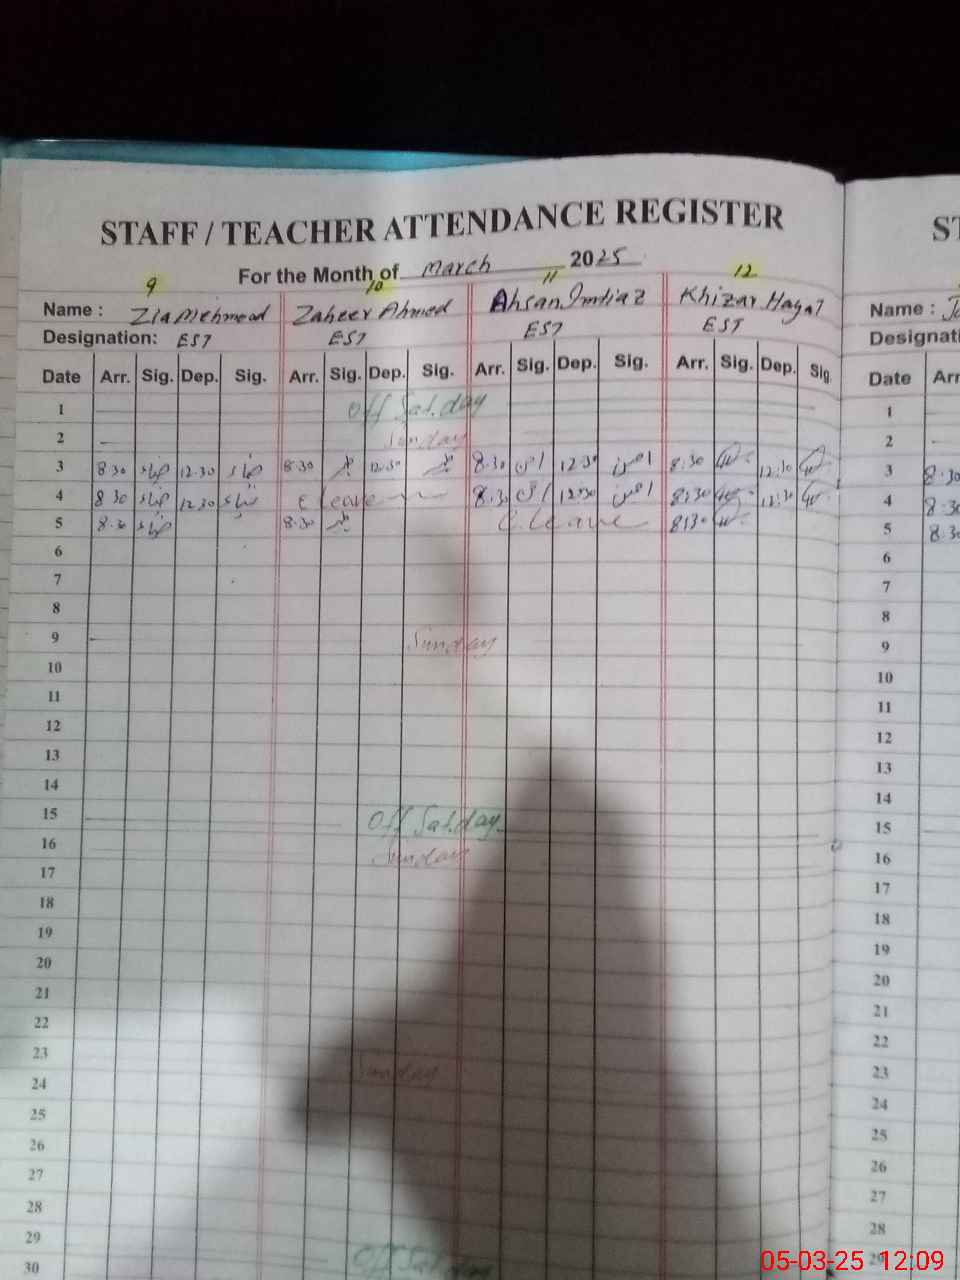 STAFF / TEACHER ATTENDANCE REGISTER ST
For the Month of March 2025
9 10 11 12
Name : Zia Mehmood Zaheer Ahmed Ahsan Imtiaz Khizar Hayat Name :
Designation: EST EST EST EST Designati
Date Arr. Sig. Dep. Sig. Arr. Sig. Dep. Sig. Arr. Sig. Dep. Sig. Arr. Sig. Dep. Sig. Date Arr
1 Off Sat.day 1
2 Sunday 2
3 8:30 ضیاء 12.30 ضیاء 8:30 12:30 8:30 12:30 8:30 12:30 3 8:30
4 8:30 ضیاء 12:30 ضیاء C leave 8:30 12:30 8:30 12:30 4 8:30
5 8:30 ضیاء 8:30 C. leave 8:30 5 8:30
6 6
7 7
8 8
9 Sunday 9
10 10
11 11
12 12
13 13
14 14
15 Off Sat.day 15
16 Sunday 16
17 17
18 18
19 19
20 20
21 21
22 22
23 Sunday 23
24 24
25 25
26 26
27 27
28 28
29 Off Sat.day 29
30
05-03-25 12:09